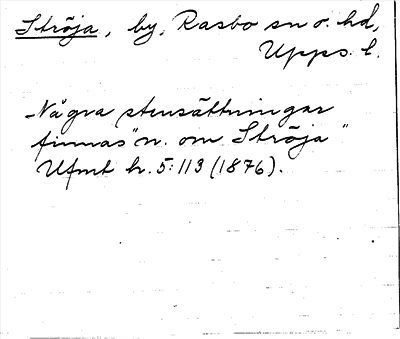 Ströja, by, Rasbo sn o. hd,
Upps. l.
Några stensättningar
finnas "n. om Ströja"
Ufmt h. 5:113 (1876).